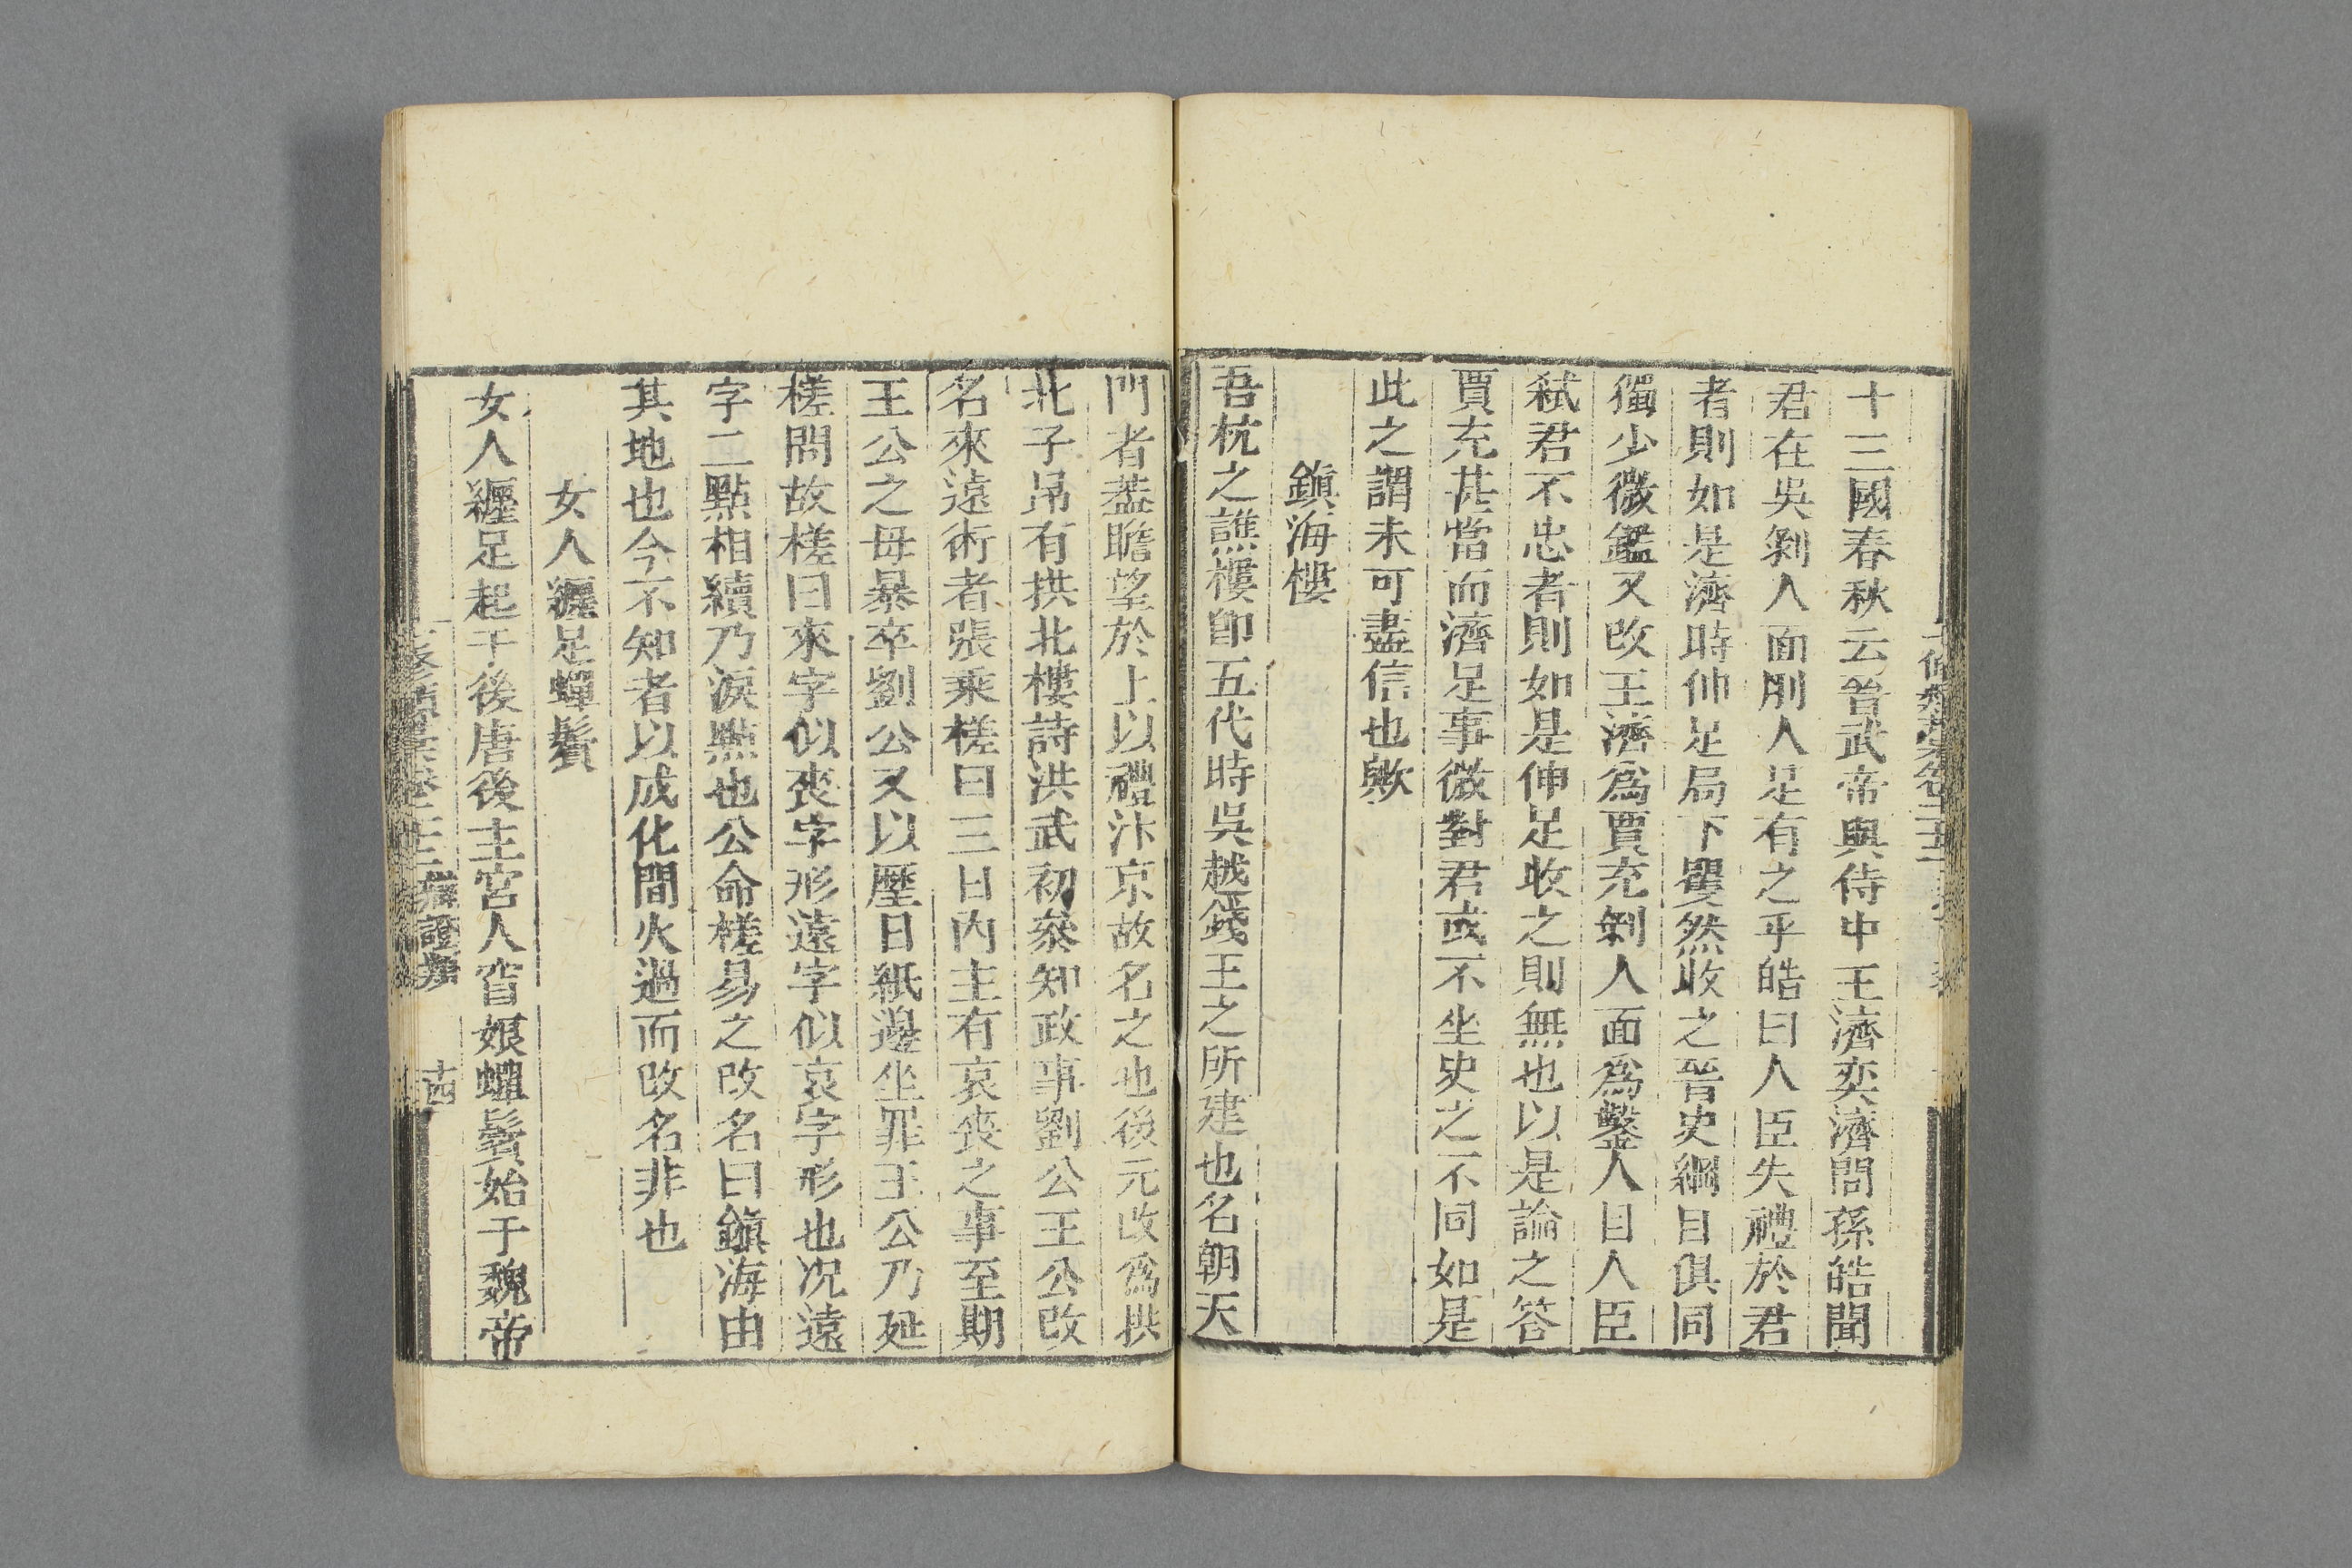 十三國春秋云晉武帝與侍中王濟奕濟問孫皓聞
君在吳剝人面刖人足有之乎皓曰人臣失禮於君
者則如是濟時伸足局下矍然收之晉史綱目俱同
獨少微鑑又改王濟爲賈充剝人面爲鑿人目人臣
弒君不忠者則如是伸足收之則無也以是論之答
賈充甚當而濟足事微對君或不坐史之不同如是
此之謂未可盡信也歟
鎮海樓
吾杭之譙樓卽五代時吳越錢王之所建也名朝天
門者葢瞻望於上以禮汴京故名之也後元改爲拱
北子吊有拱北樓詩洪武初叅知政事劉公王公改
名來遠術者張乘槎曰三日內主有哀喪之事至期
王公之母暴卒劉公又以歷日紙邊坐罪王公乃延
槎問故槎曰來字似喪字形遠字似哀字形也况遠
字二點相續乃淚㸃也公命槎易之改名曰鎮海由
其地也今不知者以成化間火過而改名非也
女人纏足蟬鬢
女人纏足起于後唐後主宮人窅娘蟬鬢始于魏帝
辯證類 十四